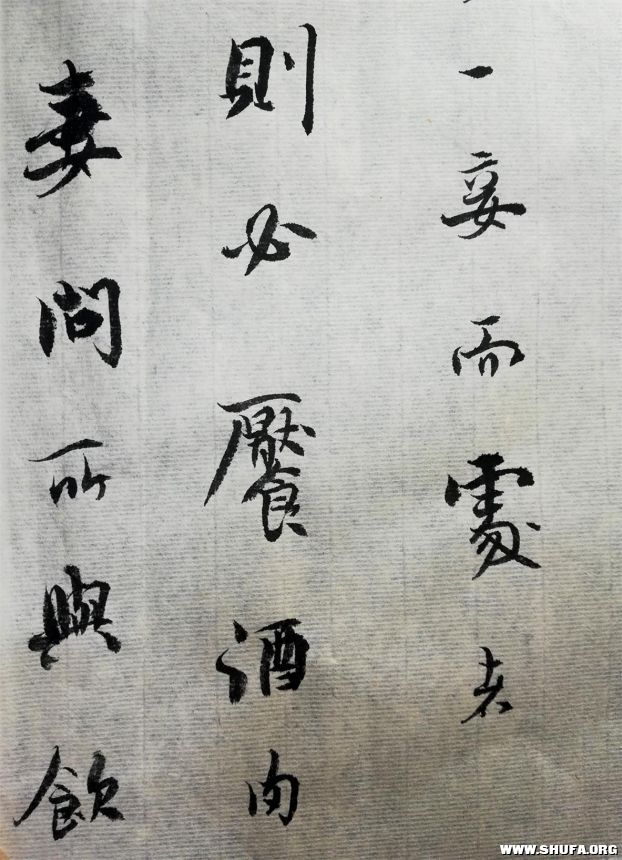 一妾而處者
則必饜酒肉
妻問所與飲
WWW.SHUFA.ORG